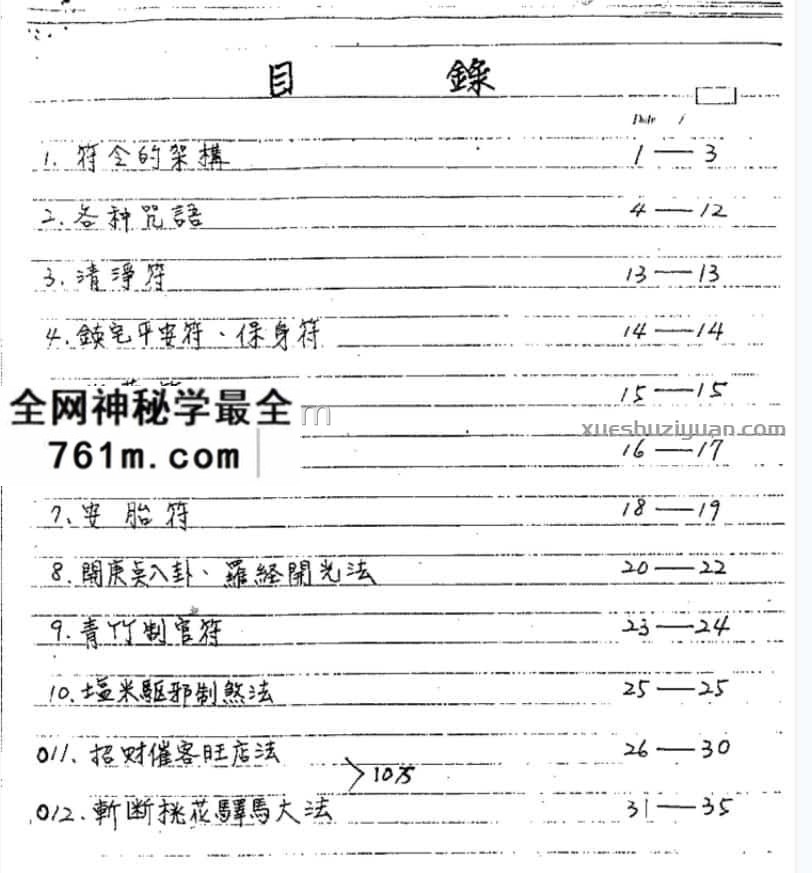 目 錄
Date /
1. 符令的架構 1—3
2. 各种咒語 4—12
3. 清淨符 13—13
4. 鎮宅平安符、保身符 14—14
15—15
全网神秘学最全
xueshuziyuan.com
761m.com
16—17
7. 安胎符 18—19
8. 開庚点八卦、羅経開光法 20—22
9. 青竹制官符 23—24
10. 塩米駆邪制煞法 25—25
011. 招财催客旺店法 26—30
012. 斬断挑花驛馬大法 31—35